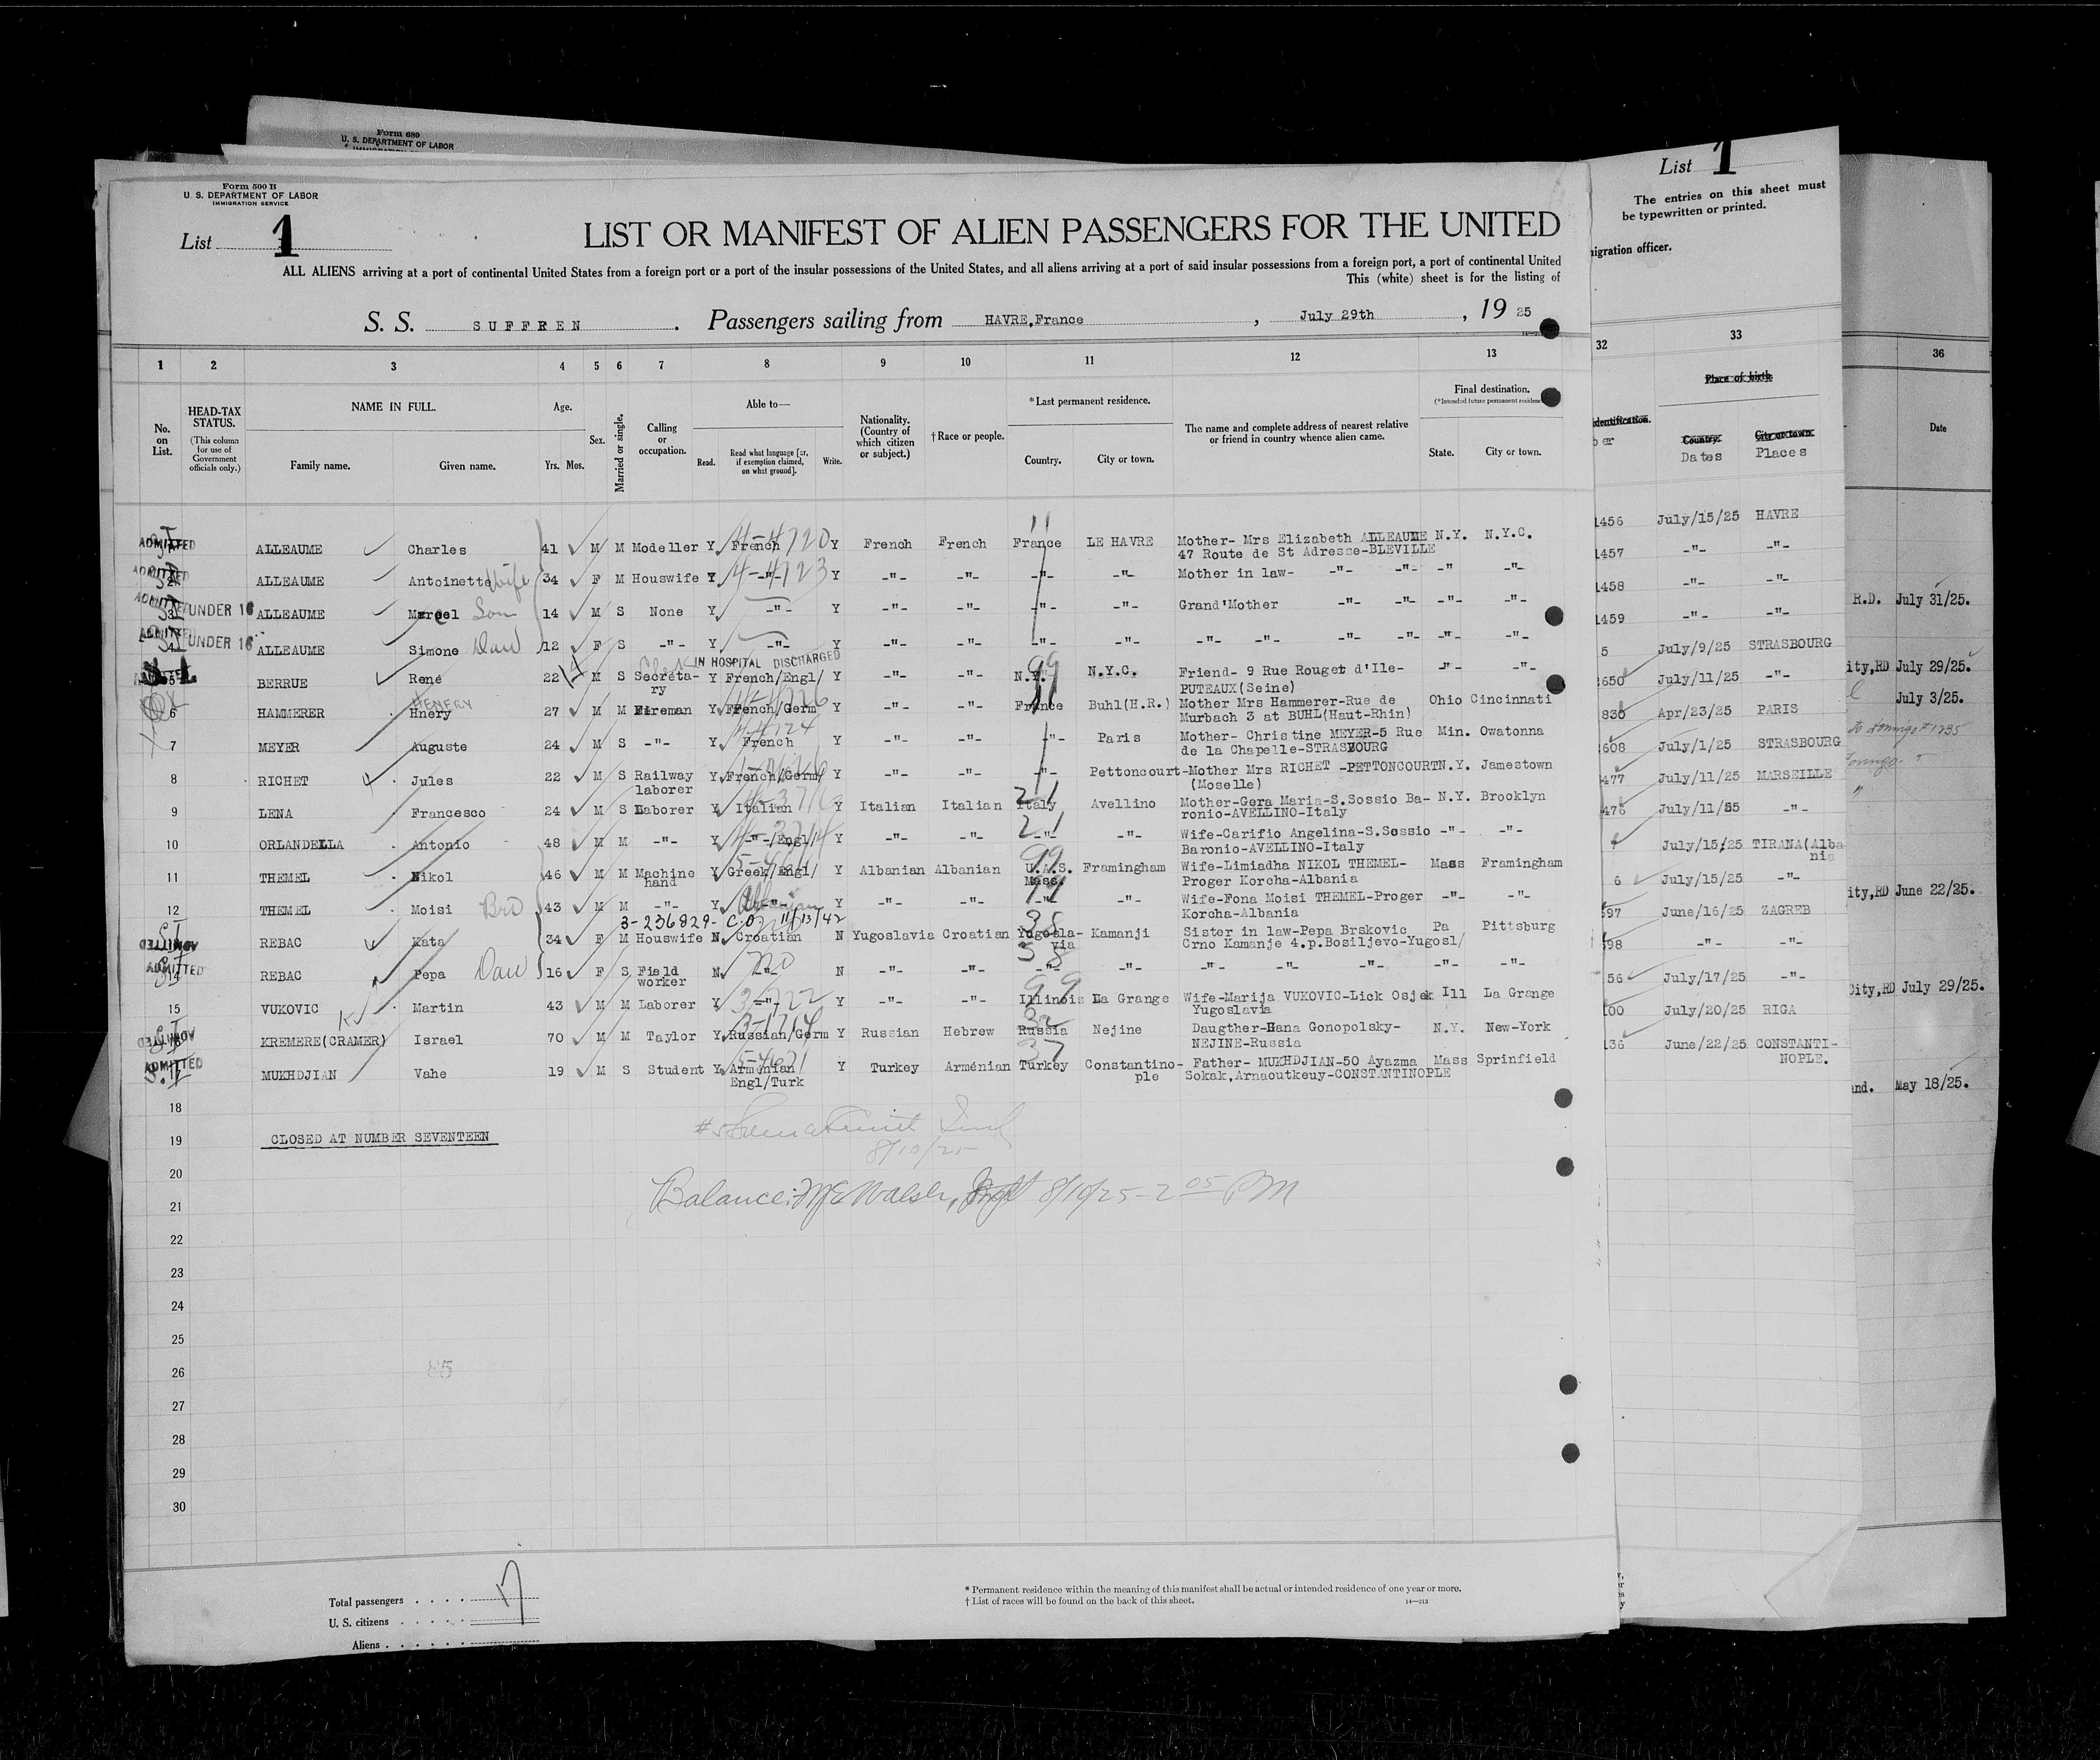 Form 680
U. S. DEPARTMENT OF LABOR
Form 500 B
U. S. DEPARTMENT OF LABOR
IMMIGRATION SERVICE
List 1
LIST OR MANIFEST OF ALIEN PASSENGERS FOR THE UNITED
ALL ALIENS arriving at a port of continental United States from a foreign port or a port of the insular possessions of the United States, and all aliens arriving at a port of said insular possessions from a foreign port, a port of continental United
This (white) sheet is for the listing of
S. S. SUFFREN. Passengers sailing from HAVRE,France, July 29th, 19 25
1 2 3 4 5 6 7 8 9 10 11 12 13
No. on List.
HEAD-TAX STATUS.
(This column for use of Government officials only.)
NAME IN FULL.
Family name. Given name.
Age.
Yrs. Mos.
Sex.
Married or single.
Calling or occupation.
Able to—
Read. Read what language [or, if exemption claimed, on what ground]. Write.
Nationality. (Country of which citizen or subject.)
†Race or people.
*Last permanent residence.
Country. City or town.
The name and complete address of nearest relative or friend in country whence alien came.
Final destination.
(*Intended future permanent residence)
State. City or town.
ADMITTED ALLEAUME Charles 41 M M Modeller Y French 4-4720 Y French French France LE HAVRE Mother- Mrs Elizabeth ALLEAUME N.Y. N.Y.C.
47 Route de St Adresse-BLEVILLE
ADMITTED ALLEAUME Antoinette wife 34 F M Houswife Y -"- 4-4723 Y -"- -"- -"- -"- Mother in law- -"- -"- -" -"-
ADMITTED 3 UNDER 16 ALLEAUME Marcel Son 14 M S None Y -"- Y -"- -"- -"- -"- Grand'Mother -"- -"- -"- -"-
ADMITTED 4 UNDER 16 ALLEAUME Simone Dau 12 F S -"- Y -"- Y -"- -"- -"- -"- -"- -"- -"- -"- -"- -"-
IN HOSPITAL DISCHARGED
5 BERRUE René 22 M S Secreta- Y French/Engl/ Y -"- -"- N.Y. 99 N.Y.C. Friend- 9 Rue Rouget d'Ile- -"- -"-
ry PUTEAUX(Seine)
HENERY
6 HAMMERER Hnery 27 M M Fireman Y French/Germ Y -"- -"- France Buhl(H.R.) Mother Mrs Hammerer-Rue de Ohio Cincinnati
Murbach 3 at BUHL(Haut-Rhin)
7 MEYER Auguste 24 M S -"- Y French Y -"- -"- -"- Paris Mother- Christine MEYER-5 Rue Min. Owatonna
de la Chapelle-STRASBOURG
8 RICHET Jules 22 M S Railway Y French/Germ/ Y -"- -"- -"- Pettoncourt-Mother Mrs RICHET -PETTONCOURT N.Y. Jamestown
laborer (Moselle)
9 LENA Francesco 24 M S Laborer Y Italian Y Italian Italian Italy Avellino Mother-Gera Maria-S.Sossio Ba- N.Y. Brooklyn
ronio-AVELLINO-Italy
10 ORLANDELLA Antonio 48 M M -"- Y -"-/Engl/ Y -"- -"- -"- -"- Wife-Carifio Angelina-S.Sossio -"- -"-
Baronio-AVELLINO-Italy
11 THEMEL Nikol 46 M M Machine Y Greek/Engl/ Y Albanian Albanian U.A.S. Framingham Wife-Limiadha NIKOL THEMEL- Mass Framingham
hand Mass. Proger Korcha-Albania
12 THEMEL Moisi Bro 43 M M -"- Y Albanian Y -"- -"- -"- -"- Wife-Fona Moisi THEMEL-Proger -"- -"-
Korcha-Albania
3-236829- C.O. 11/13/42
ADMITTED REBAC Kata 34 F M Houswife N Croatian N Yugoslavia Croatian Yugosla- Kamanji Sister in law-Pepa Brskovic Pa Pittsburg
via Crno Kamanje 4.p.Bosiljevo-Yugosl/
ADMITTED 14 REBAC Pepa Dau 16 F S Field N -"- no N -"- -"- -"- -"- -"- -"- -"- -"- -"-
worker
15 VUKOVIC Martin 43 M M Laborer Y -"- Y -"- -"- Illinois La Grange Wife-Marija VUKOVIC-Lick Osjek Ill La Grange
Yugoslavia
ADMITTED KREMERE(CRAMER) Israel 70 M M Taylor Y Russian/Germ Y Russian Hebrew Russia Nejine Daugther-Hana Gonopolsky- N.Y. New-York
NEJINE-Russia
ADMITTED MUKHDJIAN Vahe 19 M S Student Y Arménian Y Turkey Arménian Turkey 37 Constantino- Father- MUKHDJIAN-50 Ayazma Mass Sprinfield
Engl/Turk ple Sokak,Arnaoutkeuy-CONSTANTINOPLE
18
19 CLOSED AT NUMBER SEVENTEEN
8/10/25
20
Balance: Walsh, 8/10/25-2 05 PM
21
22
23
24
25
26
27
28
29
30
Total passengers 17
U. S. citizens
Aliens
* Permanent residence within the meaning of this manifest shall be actual or intended residence of one year or more.
† List of races will be found on the back of this sheet.
14—213
List 1
The entries on this sheet must
be typewritten or printed.
migration officer.
32 33
identification.
ber
Place of birth
Country. City or town.
Dates Places
1456 July/15/25 HAVRE
1457 -"- -"-
1458 -"- -"-
1459 -"- -"-
5 July/9/25 STRASBOURG
650 July/11/25 -"-
830 Apr/23/25 PARIS
608 July/1/25 STRASBOURG
477 July/11/25 MARSEILLE
476 July/11/55 -"-
July/15/25 TIRANA(Alba
nia
6 July/15/25 -"-
597 June/16/25 ZAGREB
598 -"- -"-
56 July/17/25 -"-
100 July/20/25 RIGA
136 June/22/25 CONSTANTI-
NOPLE.
36
Date
R.D. July 31/25.
ity,RD July 29/25.
July 3/25.
ity,RD June 22/25.
City,RD July 29/25.
and. May 18/25.